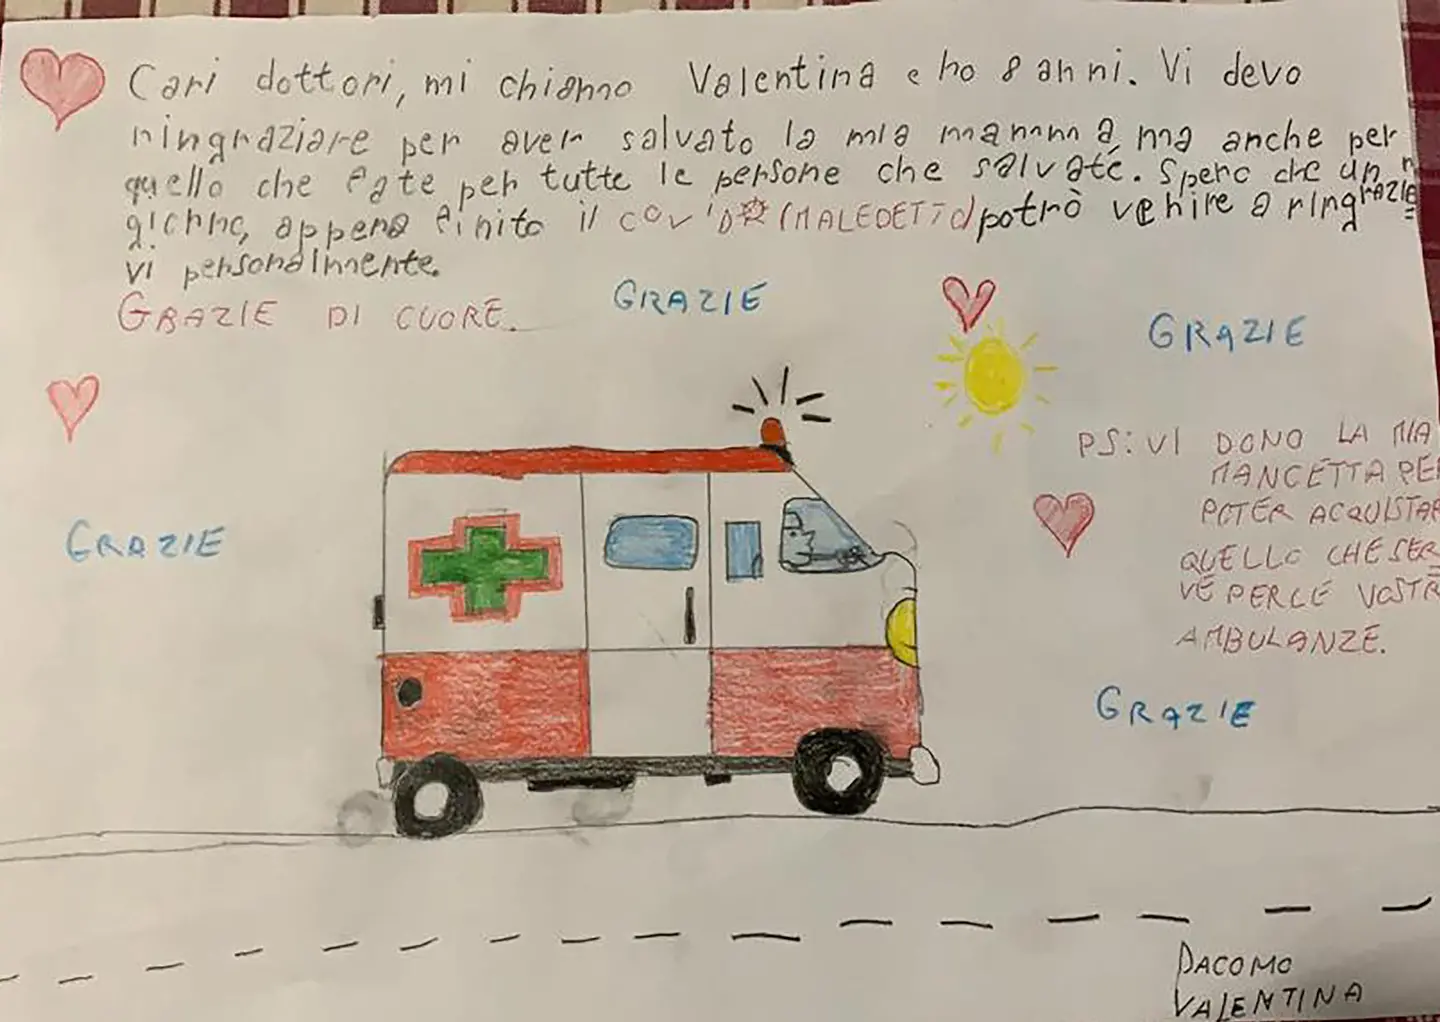 Cari dottori, mi chiamo Valentina e ho 8 anni. Vi devo
ringraziare per aver salvato la mia mamma ma anche per
quello che fate per tutte le persone che salvate. Spero che un
giorno, appena finito il COVID (MALEDETTO) potrò venire a ringrazia=
vi personalmente.
GRAZIE DI CUORE.
GRAZIE
GRAZIE
GRAZIE
PS: VI DONO LA MIA
MANCETTA PER
POTER ACQUISTAR
QUELLO CHE SER=
VE PER LE VOSTR
AMBULANZE.
GRAZIE
DACOMO
VALENTINA